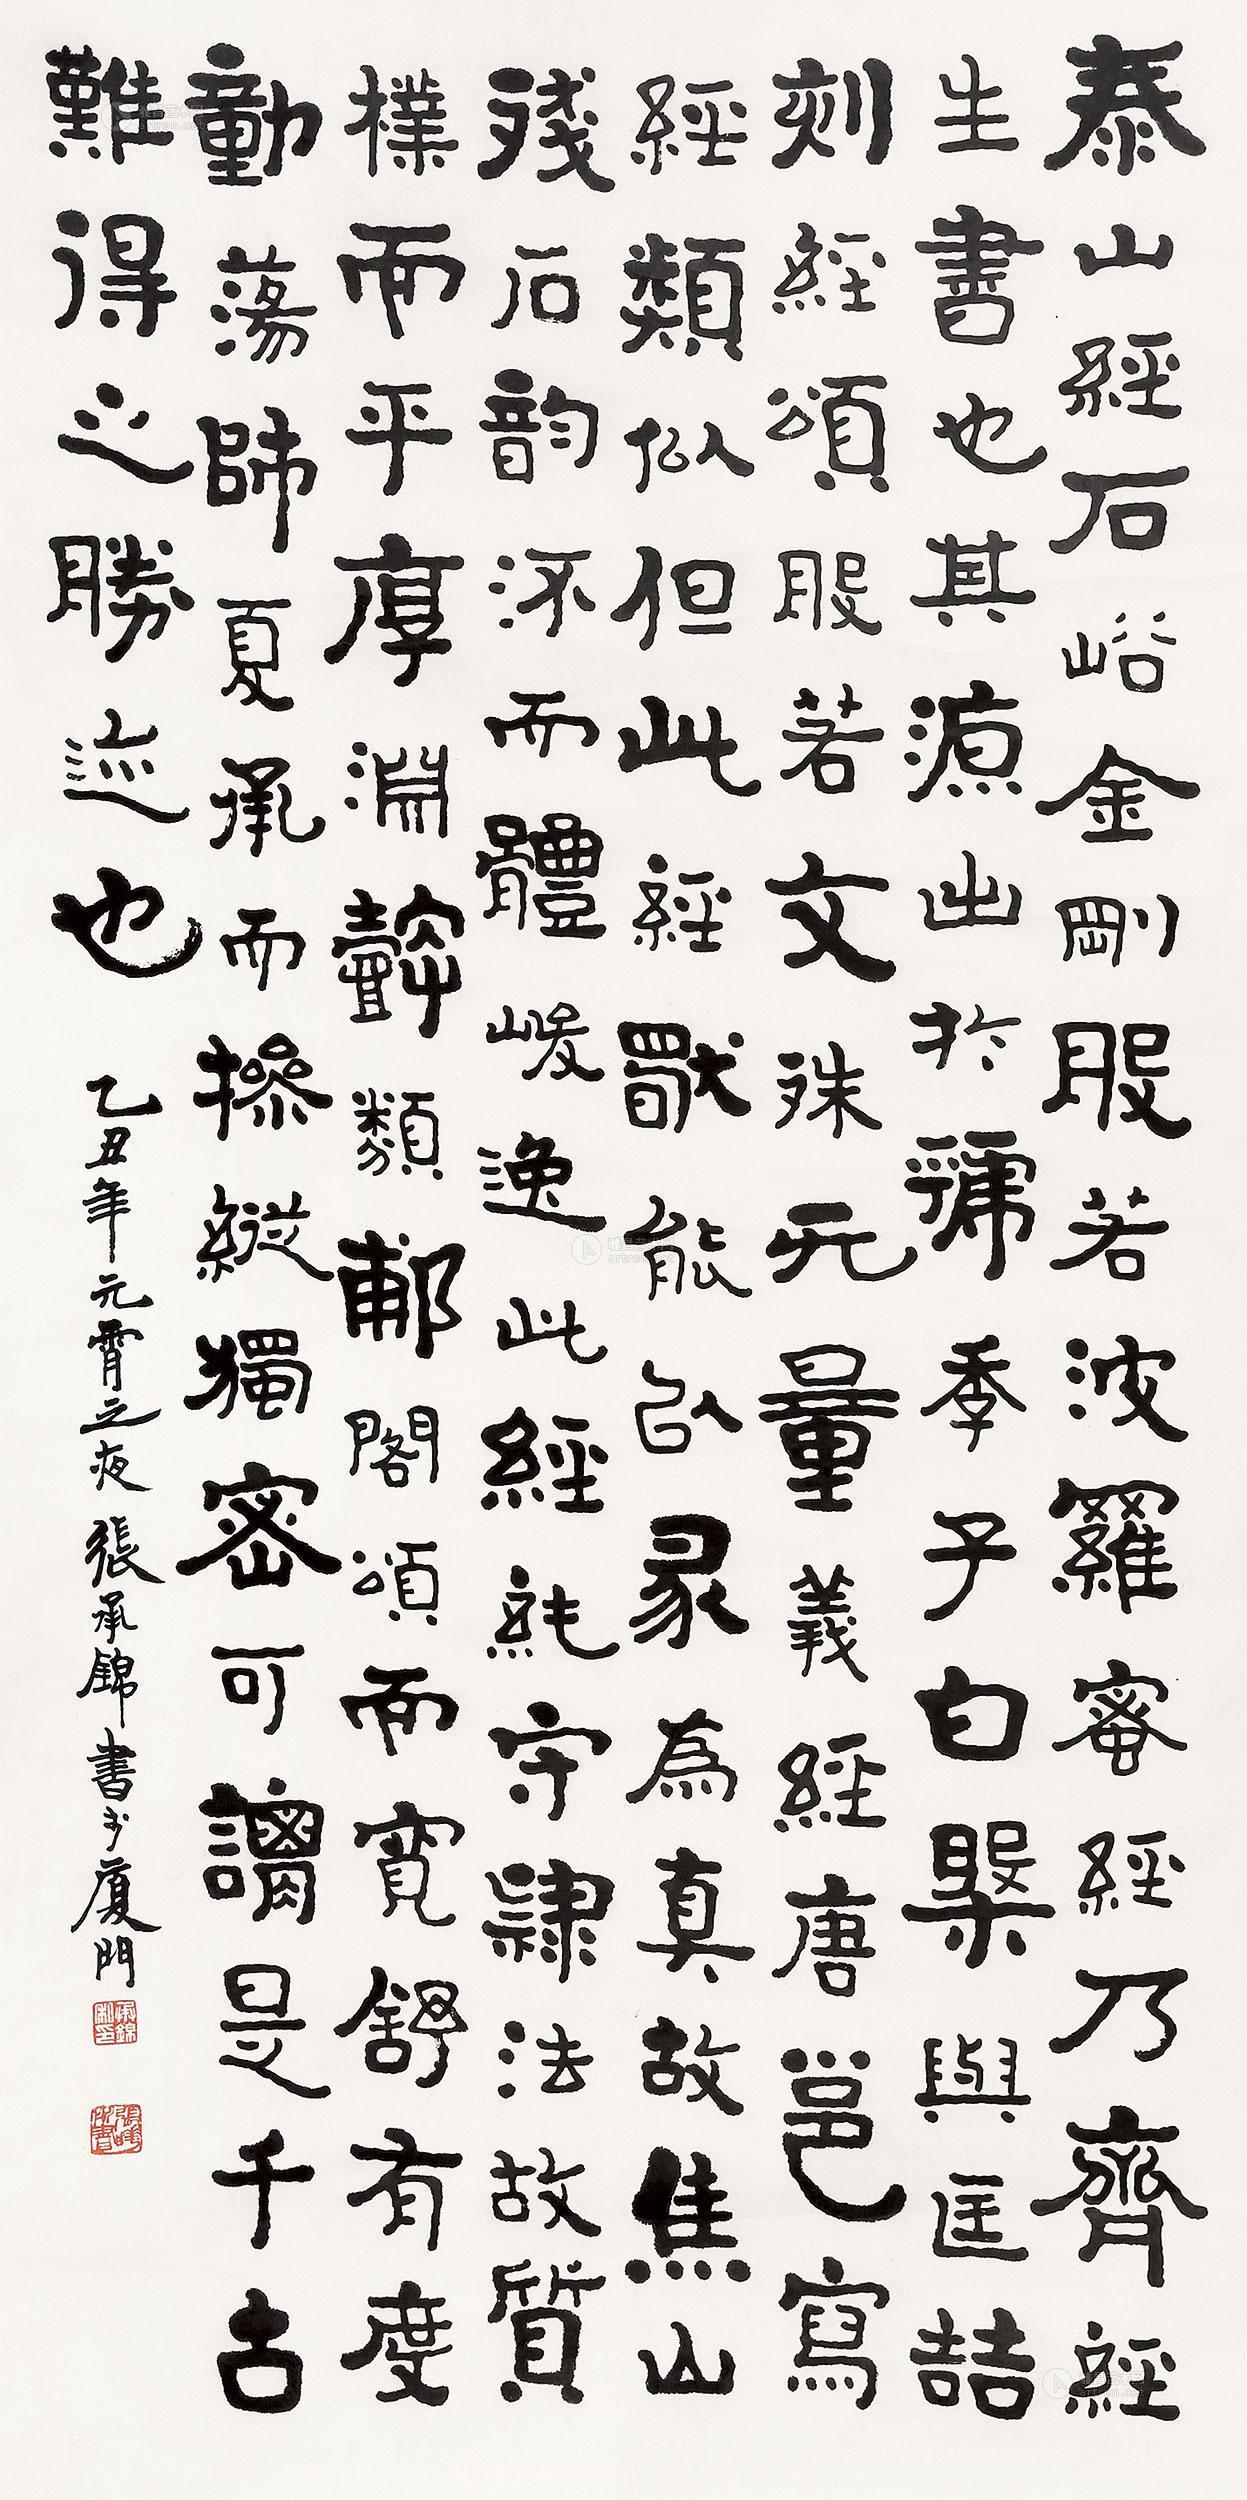 泰山經石峪金剛般若波羅蜜經乃齊經
生書也其源出於虢季子白槃與匡喆
刻經頌般若文殊无量義經唐邕寫
經類似但此經能以隶為真故焦山
殘石韵流而體峻逸此經純守隸法故質
樸而平厚淵懿類郙閣頌而寬舒有度
動蕩師夏承而操縱獨密可謂是千古
難得之勝迹也
乙丑年元宵之夜張承錦書於厦門